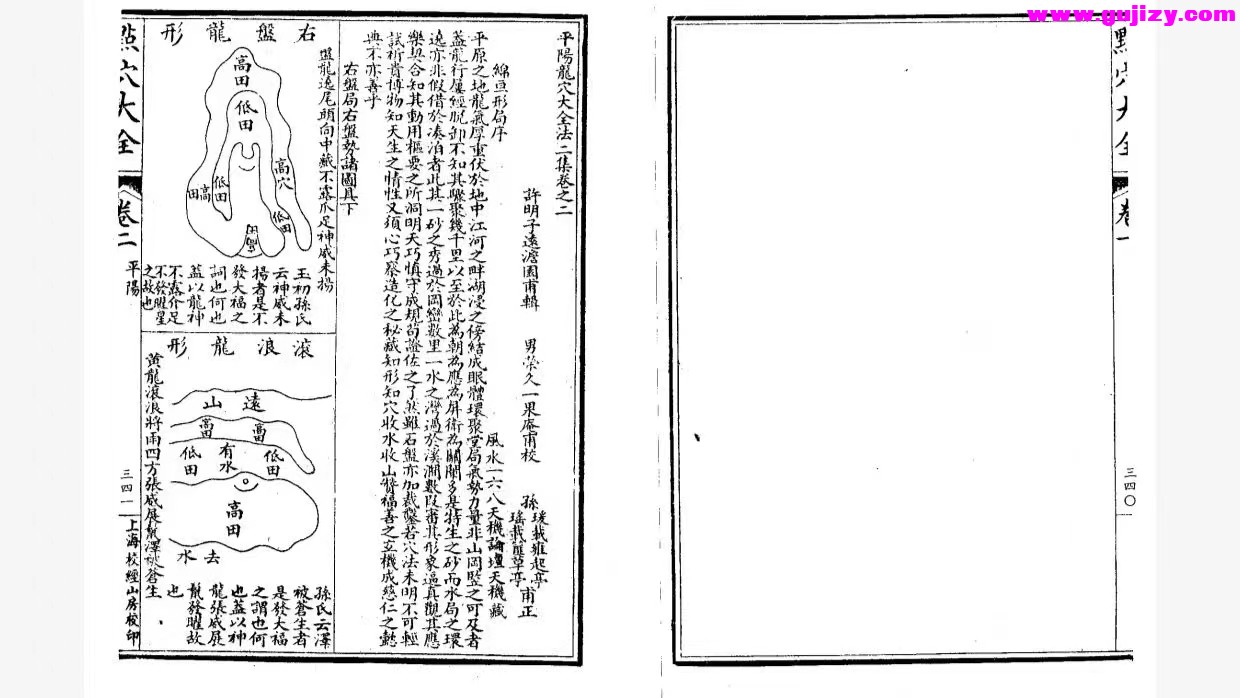 www.gujizy.com
點穴大全
卷一
三四〇
平陽龍穴大全法二集卷之二
許明子遠澹園甫輯
男榮久一果庵甫校
孫
瑤載簠草亭
甫正
綿亘形局序
風水一六八天機論壇天機藏
平原之地龍氣厚重伏於地中江河之畔湖浸之傍結成眠體環聚堂局氣勢力量非山岡監之可及者
蓋龍行屢經脫卸不知其驟聚幾千里以至於此為朝為應為屏衛為關闌多是特生之砂而水局之環
遶亦非假借於湊泊者此其一砂之秀過於岡巒數里一水之灣過於溪澗數段審其形象逼真觀其應
樂與合知其動用樞要之所洞明天巧慎守成規苟證佐之了然雖石盤亦加裁鑿若穴法未明不可輕
試祈貴博物知天生之情性又須心巧察造化之秘藏知形知穴收水收山贊福善之玄機成慈仁之懿
典不亦善乎
右盤局右盤勢諸圖具下
右盤龍形
盤龍遶尾頭向中藏不露爪足神威未揚
高田
低田
高穴
低田
高田
低田
玉初孫氏
云神威未
揚者是不
發大福之
詞也何也
蓋以龍神
不露介足
不發曜星
之故也
滾浪龍形
遠山
高田
高田
低田
有水
低田
高田
去水
黄龍滾浪將雨四方張威展鬣澤被蒼生
孫氏云澤
被蒼生者
是發大福
之謂也何
也蓋以神
龍張威展
鬣發曜故
也
點穴大全
卷二
平陽
三四一
上海校經山房校印